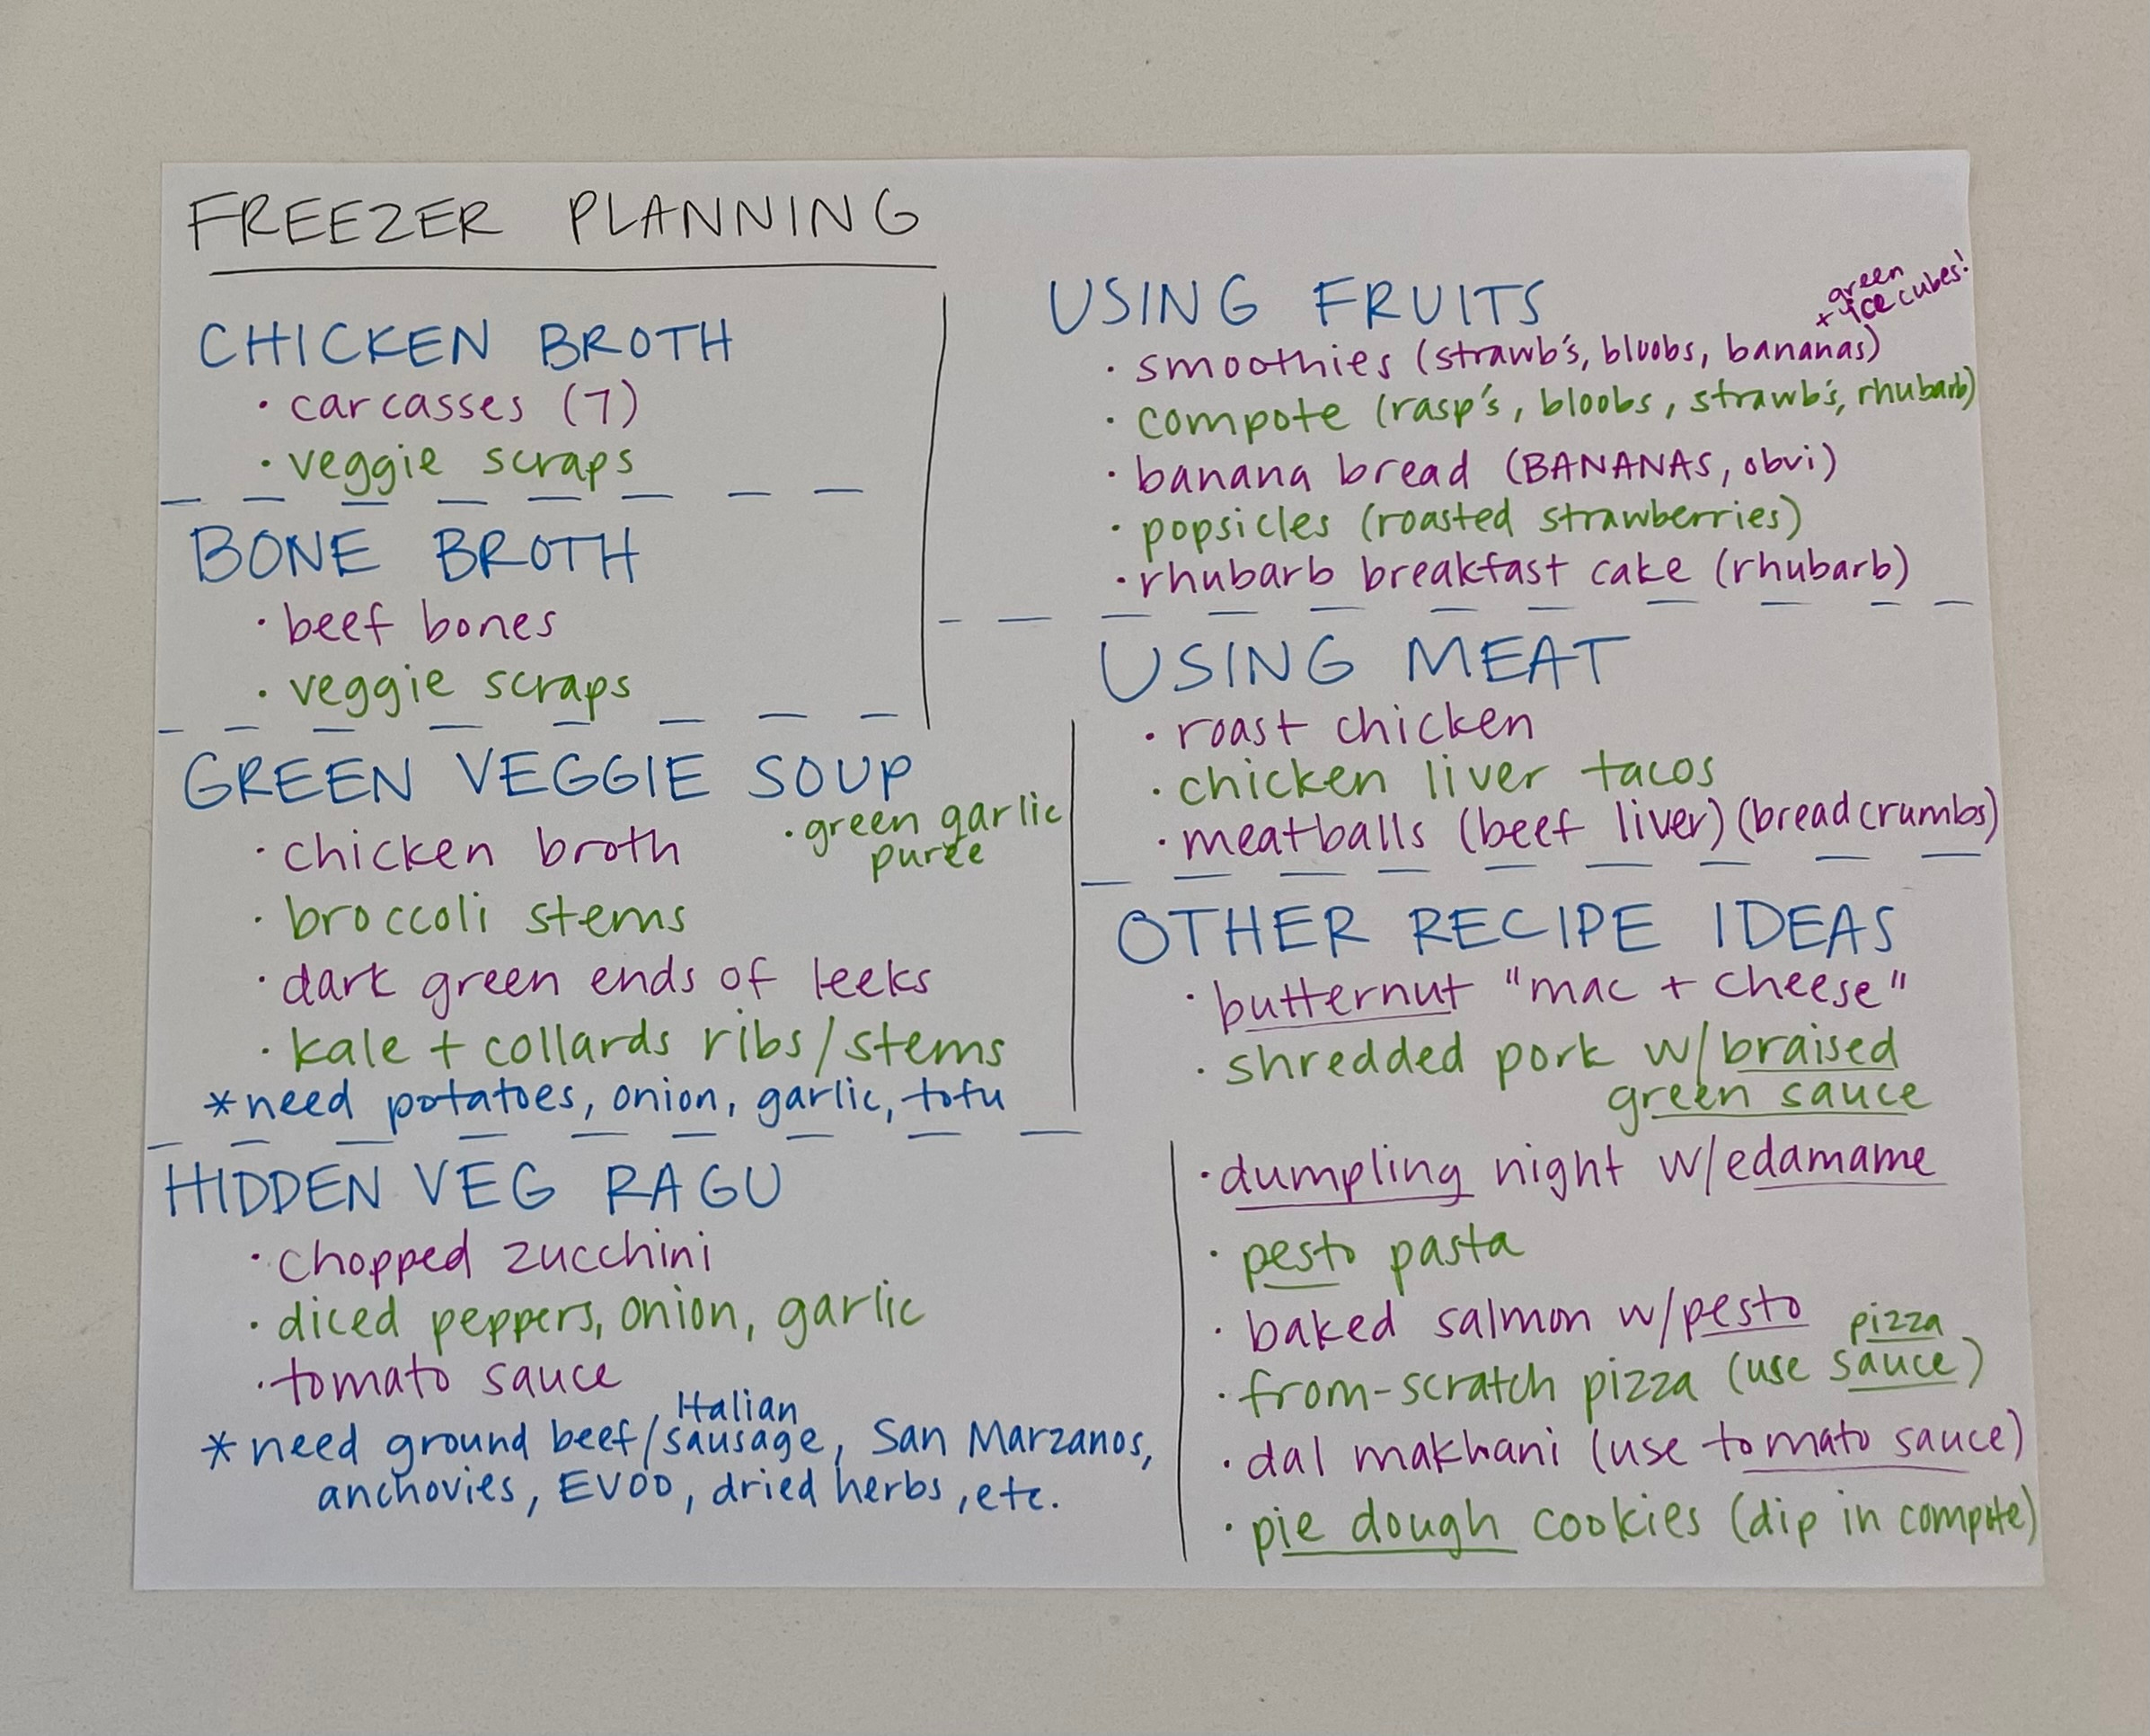 FREEZER PLANNING
CHICKEN BROTH
· carcasses (7)
· veggie scraps
BONE BROTH
· beef bones
· veggie scraps
GREEN VEGGIE SOUP
· chicken broth
· green garlic
puree
· broccoli stems
· dark green ends of leeks
· kale + collards ribs/stems
*need potatoes, onion, garlic, tofu
HIDDEN VEG RAGU
· chopped zucchini
· diced peppers, onion, garlic
· tomato sauce
*need ground beef/Italian sausage, San Marzanos,
anchovies, EVOO, dried herbs, etc.
USING FRUITS
+ green
ice cubes!
· smoothies (strawb's, bloobs, bananas)
· compote (rasp's, bloobs, strawb's, rhubarb)
· banana bread (BANANAS, obvi)
· popsicles (roasted strawberries)
· rhubarb breakfast cake (rhubarb)
USING MEAT
· roast chicken
· chicken liver tacos
· meatballs (beef liver) (breadcrumbs)
OTHER RECIPE IDEAS
· butternut "mac + cheese"
· shredded pork w/braised
green sauce
· dumpling night w/edamame
· pesto pasta
· baked salmon w/pesto
· from-scratch pizza (use pizza sauce)
· dal makhani (use tomato sauce)
· pie dough cookies (dip in compote)